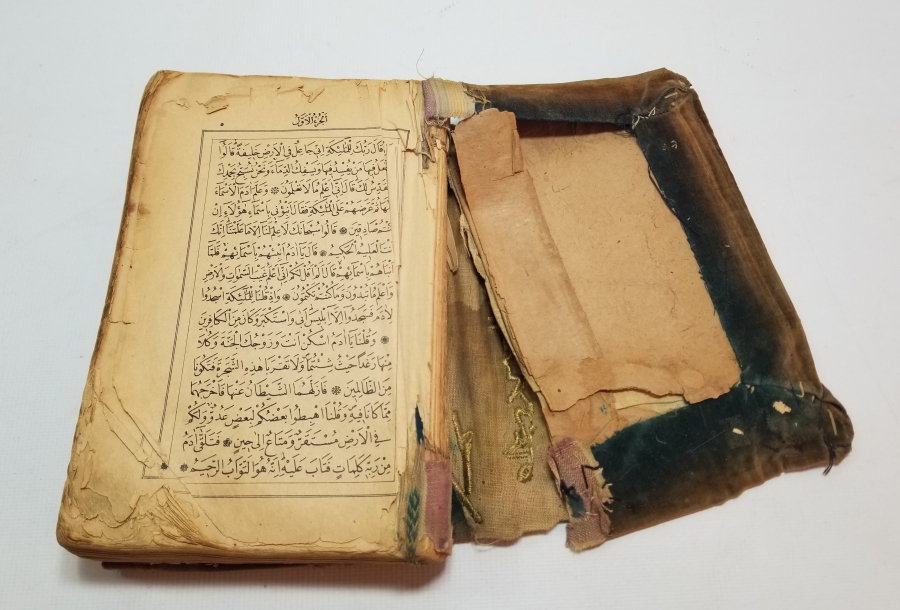 اَلْجُزْءُ الْاَوَّلُ
٥
قَالَ رَبُّكَ لِلْمَلٰٓئِكَةِ اِنّٖى جَاعِلٌ فِى الْاَرْضِ خَلٖيفَةً قَالُٓوا
فٖيهَا مَنْ يُفْسِدُ فٖيهَا وَيَسْفِكُ الدِّمَٓاءَ وَنَحْنُ نُسَبِّحُ بِحَمْدِكَ
لَكَ قَالَ اِنّٖٓى اَعْلَمُ مَا لَا تَعْلَمُونَ ❁ وَعَلَّمَ اٰدَمَ الْاَسْمَٓاءَ
ثُمَّ عَرَضَهُمْ عَلَى الْمَلٰٓئِكَةِ فَقَالَ اَنْبِؤُنٖى بِاَسْمَٓاءِ هٰٓؤُلَٓاءِ اِنْ
صَادِقٖينَ ❁ قَالُوا سُبْحَانَكَ لَا عِلْمَ لَنَٓا اِلَّا مَا عَلَّمْتَنَا اِنَّكَ
الْعَلٖيمُ الْحَكٖيمُ ❁ قَالَ يَٓا اٰدَمُ اَنْبِئْهُمْ بِاَسْمَٓائِهِمْ فَلَمَّٓا
اَنْبَاَهُمْ بِاَسْمَٓائِهِمْ قَالَ اَلَمْ اَقُلْ لَكُمْ اِنّٖٓى اَعْلَمُ غَيْبَ السَّمٰوَاتِ وَالْاَرْضِ
وَاَعْلَمُ مَا تُبْدُونَ وَمَا كُنْتُمْ تَكْتُمُونَ ❁ وَاِذْ قُلْنَا لِلْمَلٰٓئِكَةِ اسْجُدُوا
لِاٰدَمَ فَسَجَدُٓوا اِلَّٓا اِبْلٖيسَ اَبٰى وَاسْتَكْبَرَ وَكَانَ مِنَ الْكَافِرٖينَ
❁ وَقُلْنَا يَٓا اٰدَمُ اسْكُنْ اَنْتَ وَزَوْجُكَ الْجَنَّةَ وَكُلَا
مِنْهَا رَغَدًا حَيْثُ شِئْتُمَا وَلَا تَقْرَبَا هٰذِهِ الشَّجَرَةَ فَتَكُونَا
مِنَ الظَّالِمٖينَ ❁ فَاَزَلَّهُمَا الشَّيْطَانُ عَنْهَا فَاَخْرَجَهُمَا
مِمَّا كَانَا فٖيهِ وَقُلْنَا اهْبِطُوا بَعْضُكُمْ لِبَعْضٍ عَدُوٌّ وَلَكُمْ
فِى الْاَرْضِ مُسْتَقَرٌّ وَمَتَاعٌ اِلٰى حٖينٍ ❁ فَتَلَقّٰٓى اٰدَمُ
مِنْ رَبِّهٖ كَلِمَاتٍ فَتَابَ عَلَيْهِ اِنَّهُ هُوَ التَّوَّابُ الرَّحٖيمُ ❁